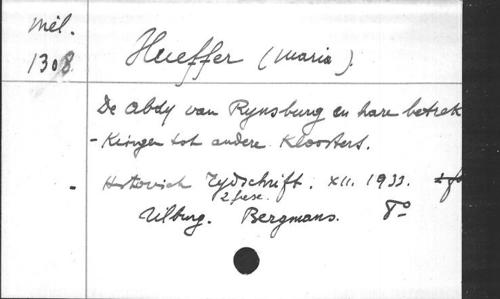 Mél.
1308.
Hueffer (Maria).
De Abdy van Rynsburg en hare betrek
-kingen tot andere Kloosters.
- Historisch Tydschrift. XII. 1933.
2 fasc.
Tilburg. Bergmans. 8°